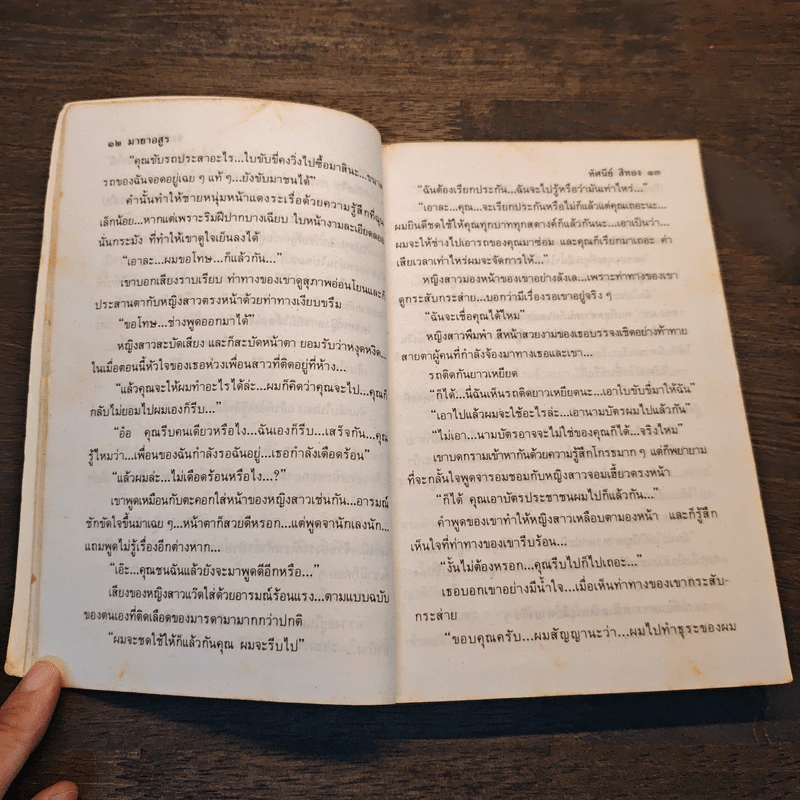 ๑๒ มายาอสูร
“คุณขับรถประสาอะไร...ใบขับขี่คงวิ่งไปซื้อมาสินะ...ขนาด
รถของฉันจอดอยู่เฉย ๆ แท้ ๆ...ยังขับมาชนได้”
คำนั้นทำให้ชายหนุ่มหน้าแดงระเรื่อด้วยความรู้สึกที่ฉุน
เล็กน้อย...หากแต่เพราะริมฝีปากบางเฉียบ ใบหน้างามละเอียดลออ
นั่นกระมัง ที่ทำให้เขาดูใจเย็นลงได้
“เอาละ...ผมขอโทษ...ก็แล้วกัน...”
เขาบอกเสียงราบเรียบ ท่าทางของเขาดูสุภาพอ่อนโยนและก็
ประสานตากับหญิงสาวตรงหน้าด้วยท่าทางเงียบขรึม
“ขอโทษ...ช่างพูดออกมาได้”
หญิงสาวสะบัดเสียง และก็สะบัดหน้าตา ยอมรับว่าหงุดหงิด...
ในเมื่อตอนนี้หัวใจของเธอห่วงเพื่อนสาวที่ติดอยู่ที่ห้าง...
“แล้วคุณจะให้ผมทำอะไรได้ล่ะ...ผมก็คิดว่าคุณจะไป...คุณก็
กลับไม่ยอมไปผมเองก็รีบ...”
“อ๋อ คุณรีบคนเดียวหรือไง...ฉันเองก็รีบ...เสร็จกัน...คุณ
รู้ไหมว่า...เพื่อนของฉันกำลังรอฉันอยู่...เธอกำลังเดือดร้อน”
“แล้วผมล่ะ...ไม่เดือดร้อนหรือไง...?”
เขาพูดเหมือนกับตะคอกใส่หน้าของหญิงสาวเช่นกัน...อารมณ์
ชักขัดใจขึ้นมาเฉย ๆ...หน้าตาก็สวยดีหรอก...แต่พูดจานักเลงนัก...
แถมพูดไม่รู้เรื่องอีกต่างหาก...
“เอ๊ะ...คุณชนฉันแล้วยังจะมาพูดดีอีกหรือ...”
เสียงของหญิงสาวแว๊ดใส่ด้วยอารมณ์ร้อนแรง...ตามแบบฉบับ
ของตนเองที่ติดเลือดของมารดามามากกว่าปกติ
“ผมจะชดใช้ให้ก็แล้วกันคุณ ผมจะรีบไป”
ทัศนีย์ สีทอง ๑๓
“ฉันต้องเรียกประกัน...ฉันจะไปรู้หรือว่ามันเท่าไหร่...”
“เอาละ...คุณ...จะเรียกประกันหรือไม่ก็แล้วแต่คุณเถอะนะ...
ผมยินดีชดใช้ให้คุณทุกบาททุกสตางค์ก็แล้วกันนะ...เอาเป็นว่า...
ผมจะให้ช่างไปเอารถของคุณมาซ่อม และคุณก็เรียกมาเถอะ ค่า
เสียเวลาเท่าไหร่ผมจะจัดการให้...”
หญิงสาวมองหน้าของเขาอย่างลังเล...เพราะท่าทางของเขา
ดูกระสับกระส่าย...บอกว่ามีเรื่องรอเขาอยู่จริง ๆ
“ฉันจะเชื่อคุณได้ไหม”
หญิงสาวพึมพำ สีหน้าสวยงามของเธอบรรจงเชิดอย่างท้าทาย
สายตาผู้คนที่กำลังจ้องมาทางเธอและเขา...
รถติดกันยาวเหยียด
“ก็ได้...นี่ฉันเห็นรถติดยาวเหยียดนะ...เอาใบขับขี่มาให้ฉัน”
“เอาไปแล้วผมจะใช้อะไรล่ะ...เอานามบัตรผมไปแล้วกัน”
“ไม่เอา...นามบัตรอาจจะไม่ใช่ของคุณก็ได้...จริงไหม”
เขาบดกรามเข้าหากันด้วยความรู้สึกโกรธมาก ๆ แต่ก็พยายาม
ที่จะกลั้นใจพูดจารอมชอมกับหญิงสาวจอมเฮี้ยวตรงหน้า
“ก็ได้ คุณเอาบัตรประชาชนผมไปก็แล้วกัน...”
คำพูดของเขาทำให้หญิงสาวเหลือบตามองหน้า และก็รู้สึก
เห็นใจที่ท่าทางของเขารีบร้อน...
“งั้นไม่ต้องหรอก...คุณรีบไปก็ไปเถอะ...”
เธอบอกเขาอย่างมีน้ำใจ...เมื่อเห็นท่าทางของเขากระสับ-
กระส่าย
“ขอบคุณครับ...ผมสัญญานะว่า...ผมไปทำธุระของผม